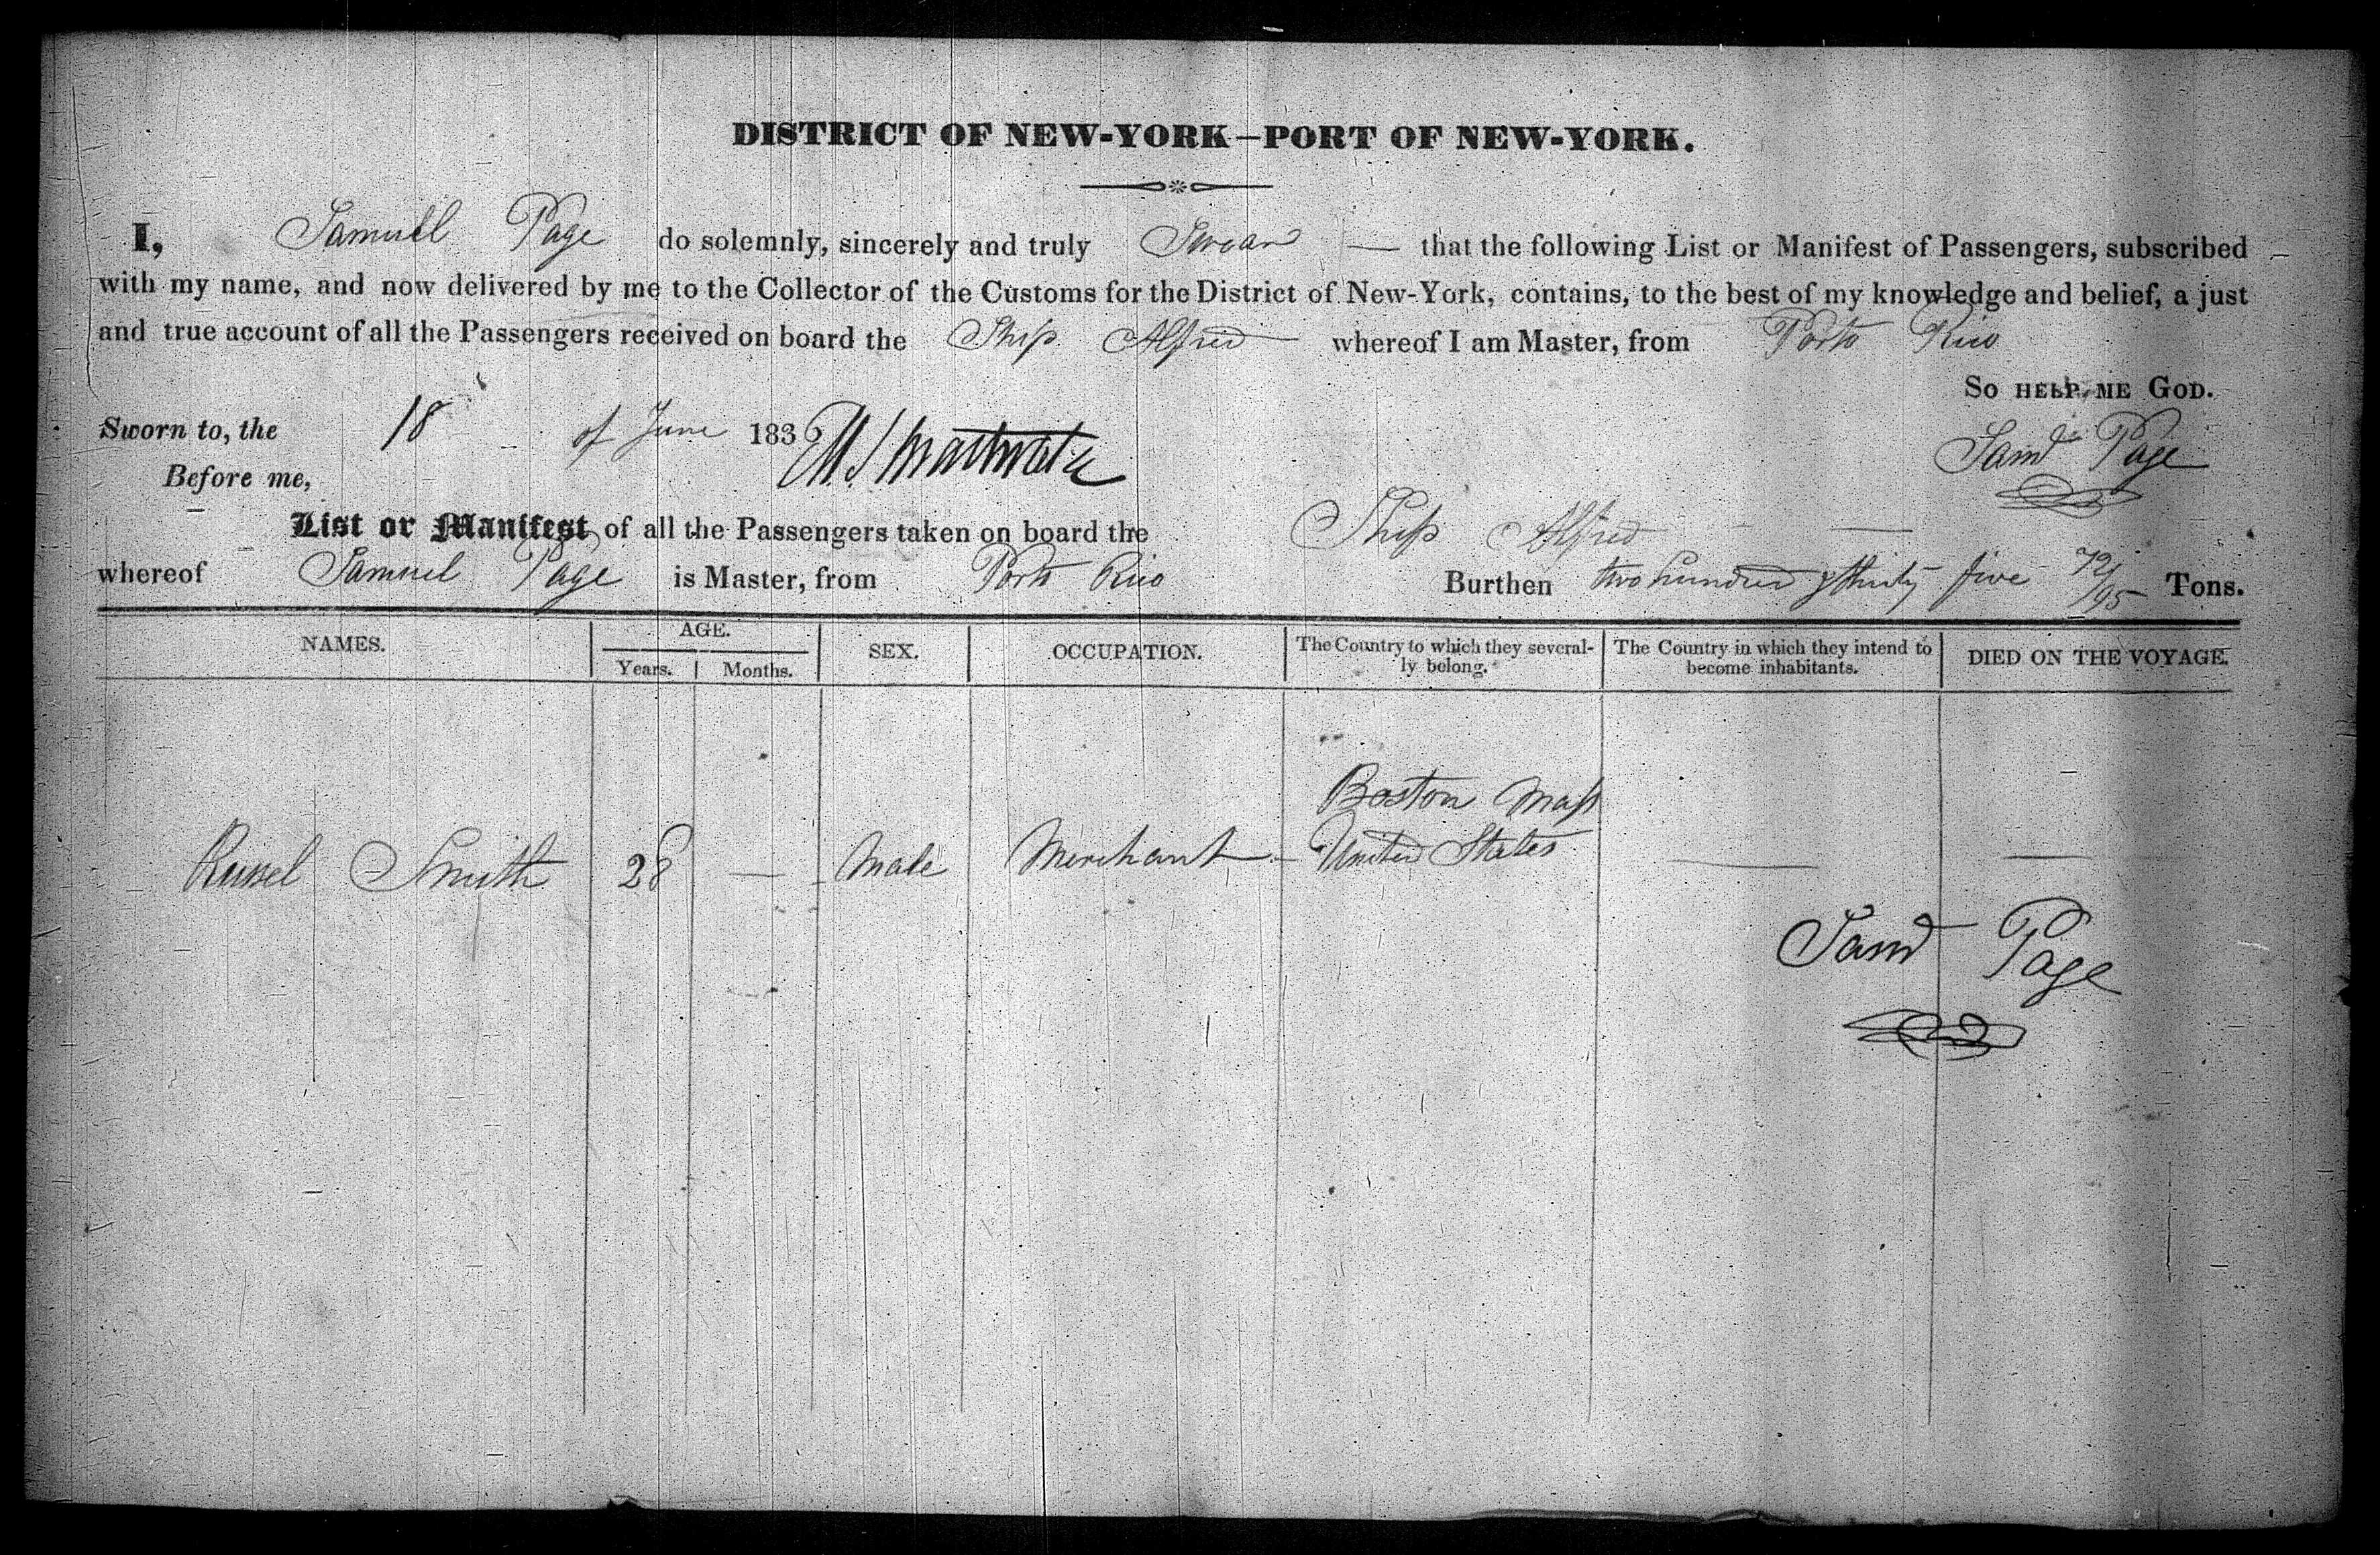 DISTRICT OF NEW-YORK—PORT OF NEW-YORK.
I, Samuell Page do solemnly, sincerely and truly Swear — that the following List or Manifest of Passengers, subscribed
with my name, and now delivered by me to the Collector of the Customs for the District of New-York, contains, to the best of my knowledge and belief, a just
and true account of all the Passengers received on board the Ship Alfred whereof I am Master, from Porto Rico
So HELP ME GOD.
Sworn to, the 18 of June 1836
Saml Page
Before me,
List or Manifest of all the Passengers taken on board the Ship Alfred —
whereof Samuel Page is Master, from Porto Rico Burthen two hundred & thirty five 72/95 Tons.
NAMES. AGE. SEX. OCCUPATION. The Country to which they several- The Country in which they intend to DIED ON THE VOYAGE.
Years. Months. ly belong. become inhabitants.
Boston Mass
Russel Smith 28 — Male Merchant United States — —
Saml Page